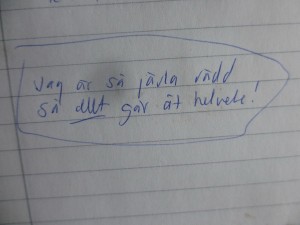 Jag är så jävla rädd
så allt går åt helvete!